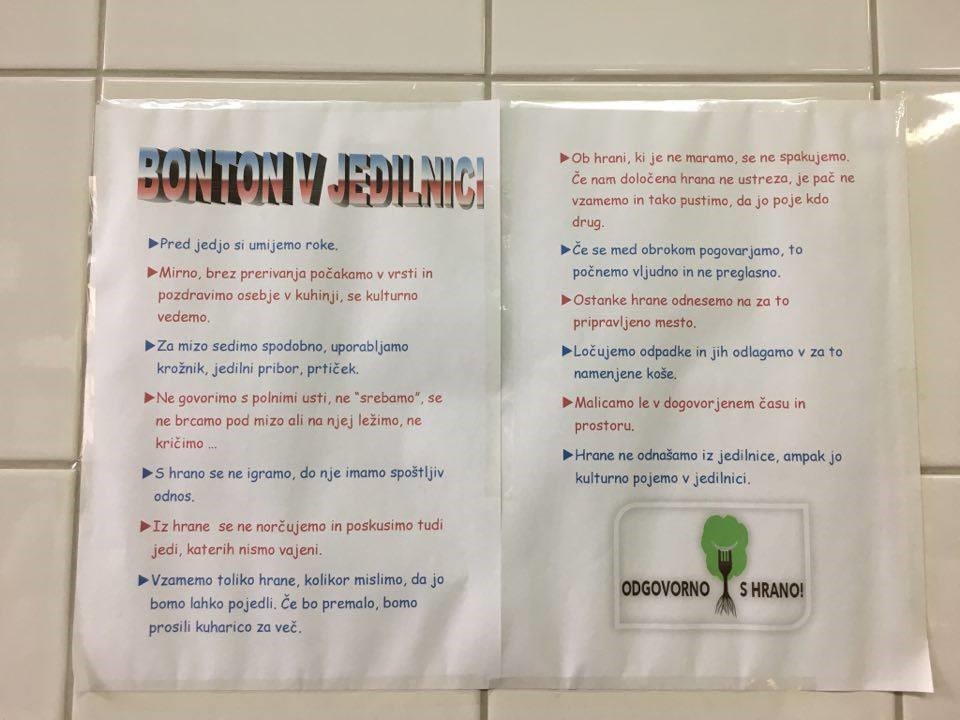 BONTON V JEDILNICI
▶Pred jedjo si umijemo roke.
▶Mirno, brez prerivanja počakamo v vrsti in
pozdravimo osebje v kuhinji, se kulturno
vedemo.
▶Za mizo sedimo spodobno, uporabljamo
krožnik, jedilni pribor, prtiček.
▶Ne govorimo s polnimi usti, ne “srebamo”, se
ne brcamo pod mizo ali na njej ležimo, ne
kričimo …
▶S hrano se ne igramo, do nje imamo spoštljiv
odnos.
▶Iz hrane se ne norčujemo in poskusimo tudi
jedi, katerih nismo vajeni.
▶Vzamemo toliko hrane, kolikor mislimo, da jo
bomo lahko pojedli. Če bo premalo, bomo
prosili kuharico za več.
▶Ob hrani, ki je ne maramo, se ne spakujemo.
Če nam določena hrana ne ustreza, je pač ne
vzamemo in tako pustimo, da jo poje kdo
drug.
▶Če se med obrokom pogovarjamo, to
počnemo vljudno in ne preglasno.
▶Ostanke hrane odnesemo na za to
pripravljeno mesto.
▶Ločujemo odpadke in jih odlagamo v za to
namenjene koše.
▶Malicamo le v dogovorjenem času in
prostoru.
▶Hrane ne odnašamo iz jedilnice, ampak jo
kulturno pojemo v jedilnici.
ODGOVORNO S HRANO!